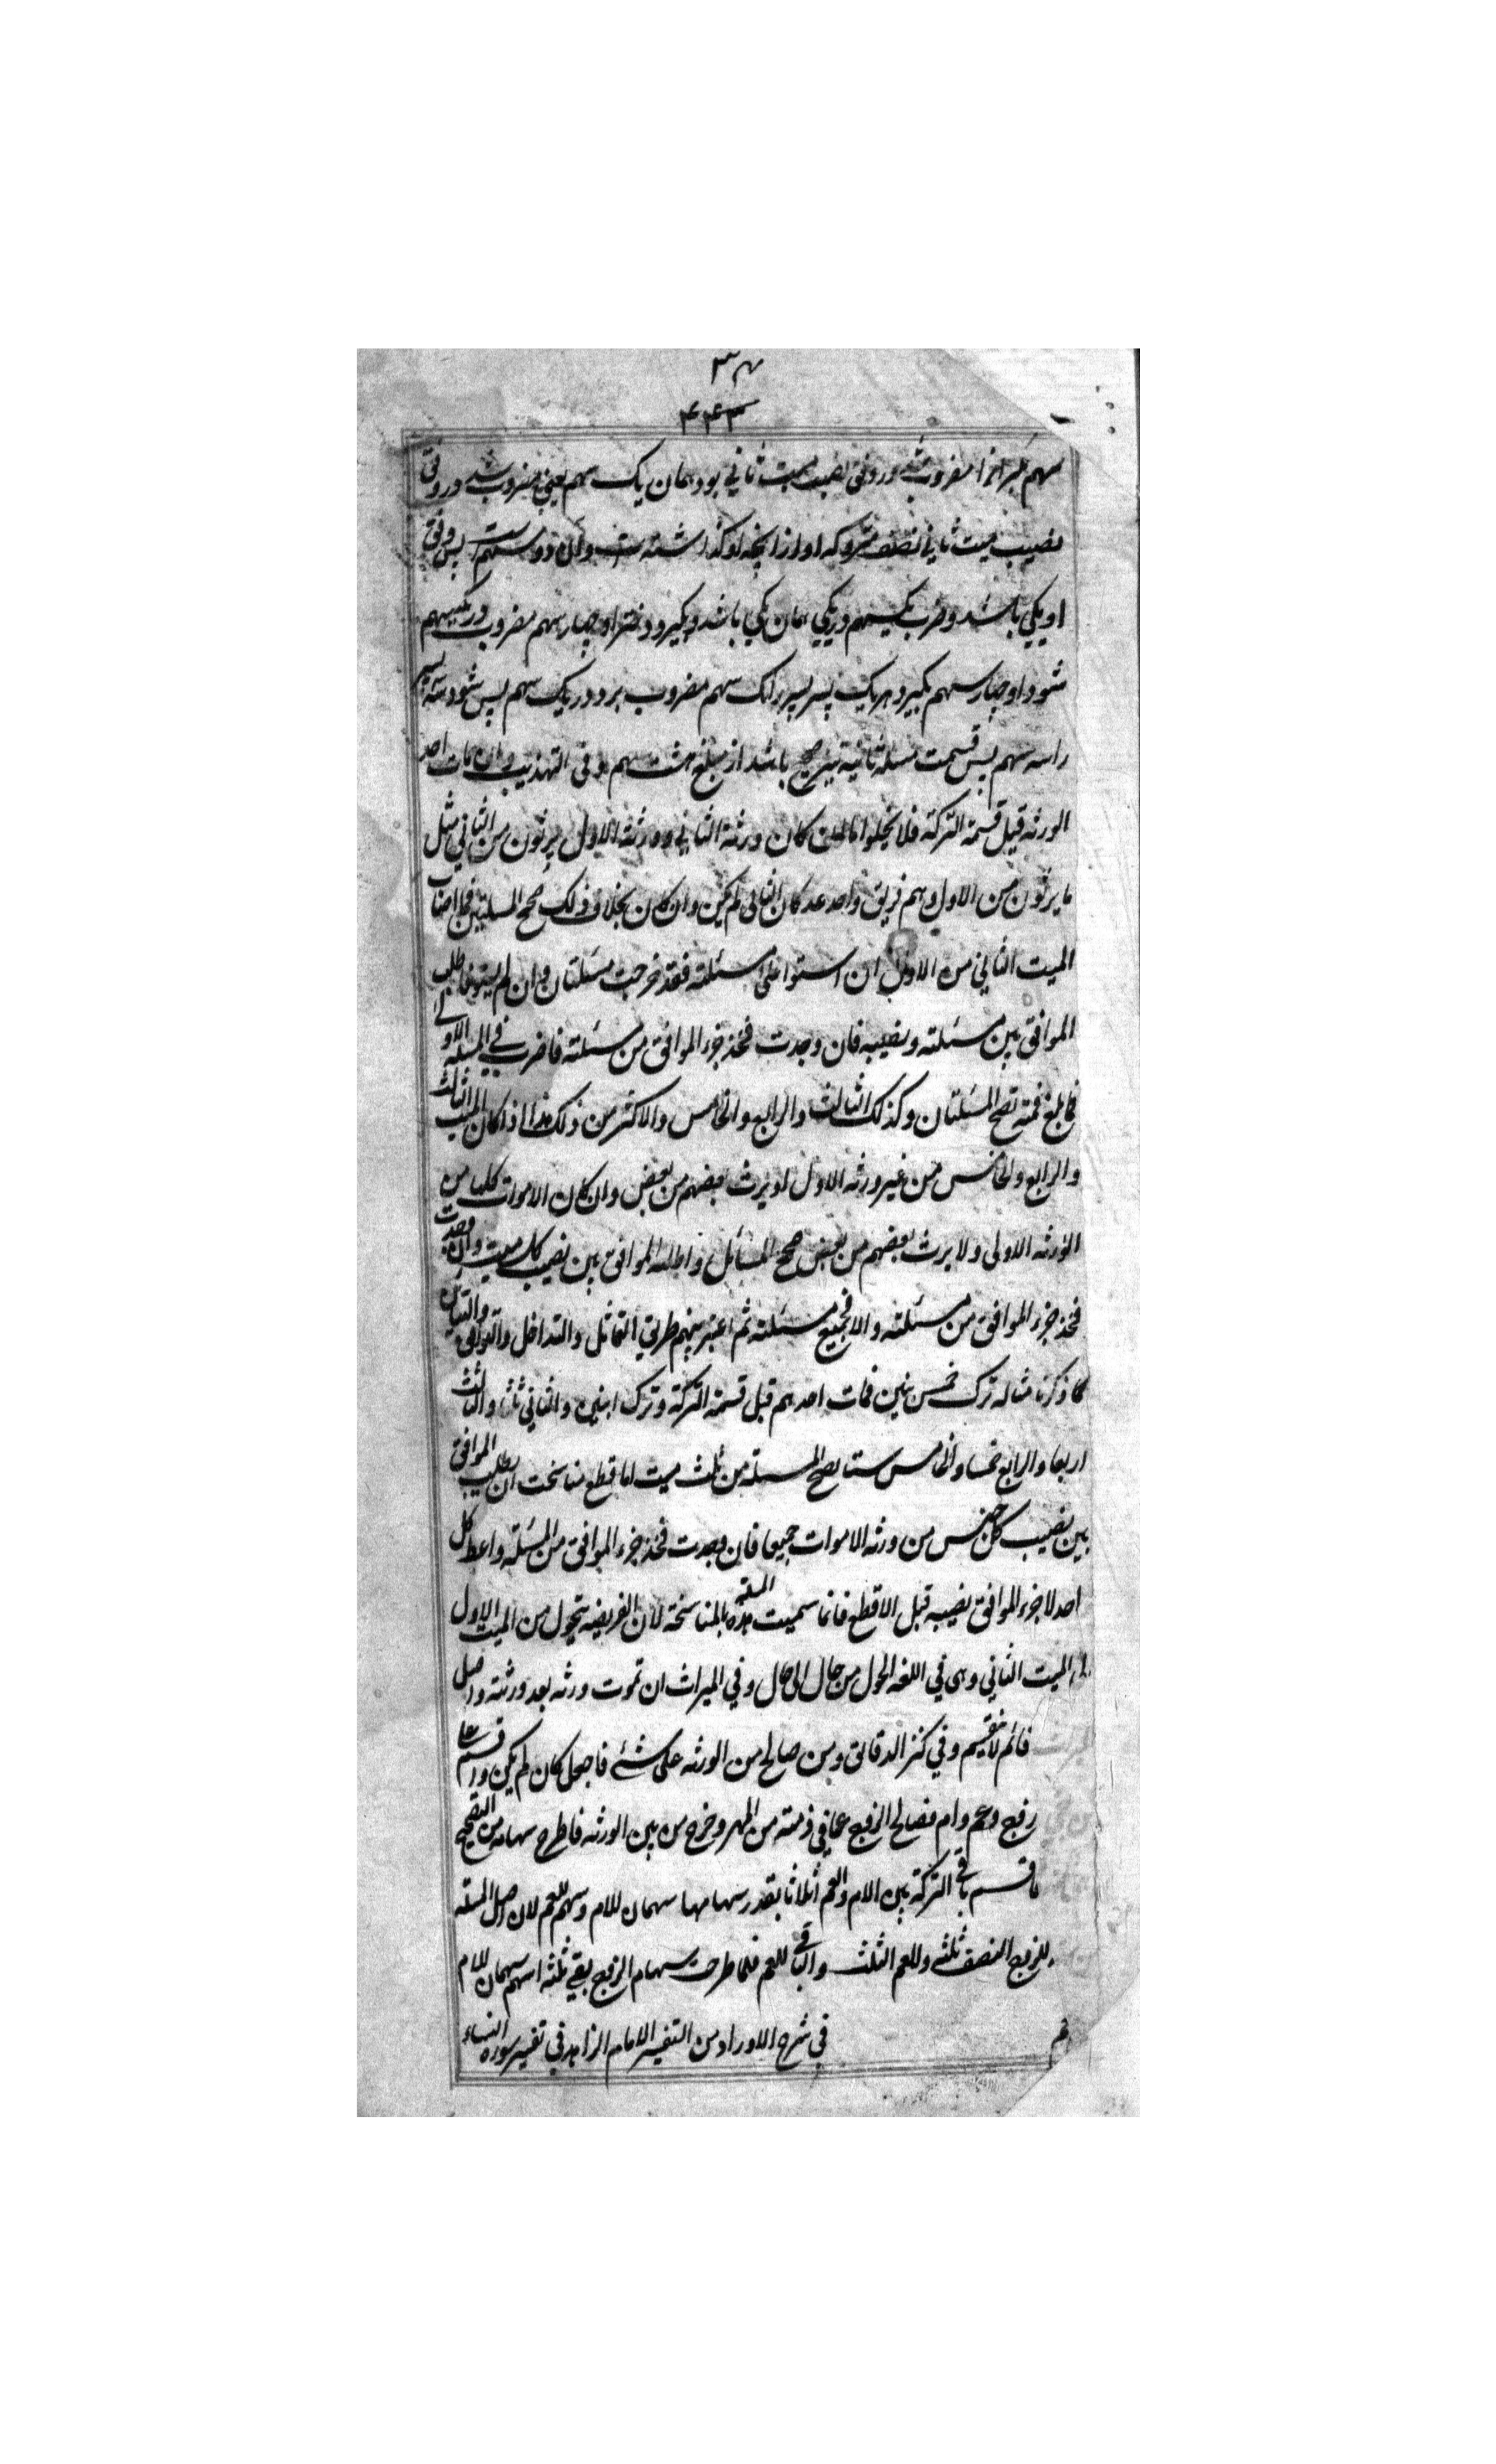 ۴۴۳
سهم مر او را مضروب شد در وفق نصیب میت ثانی بود همان یک سهم یعنی مضروب شد در وفق
نصیب میت ثانی نصف متروکه او از انچه او گذاشته است و آن دو سهم است پس وفق
او یکی باشد و ضرب یکسهم در یکی همان یکی باشد و بگیرد دختر او چهار سهم مضروب در یکسهم
شود او چهار سهم بگیرد هر یک پسر پسر را یک سهم مضروب برد در یک سهم پس شود سه پسر
را سه سهم پس قسمت مسئله ثانیه نیز صحیح باشد از مبلغ هشت سهم و فی التهذیب وان مات احد
الورثه قبل قسمة الترکة فلا یخلوا اما ان کان ورثة الثانی وورثة الاول یرثون من الثانی مثل
ما یرثون من الاول وهم فریق واحد عد کان الثانی لم یکن وان کان بخلاف ذلک صحح المسئلتین فما اصاب
المیت الثانی من الاول ان استوا علی مسئلته فقد خرجت مسئلتان وان لم یستو فاطلب
الموافق بین مسئلته ونصیبه فان وجدت فخذ جزء الموافق من مسئلته فاضرب فی المسئلة الاولی
فما بلغ فمنه تصح المسئلتان وکذلک الثالث والرابع والخامس والاکثر من ذلک هذا اذا کان المیت الثالث
والرابع والخامس من غیر ورثه الاول او یرث بعضهم من بعض وان کان الاموات کلها من
الورثه الاولی ولا یرث بعضهم من بعض صحح المسائل واطلب الموافق بین نصیب کل میت وان وجدت
فخذ جزء الموافق من مسئلته والا فجمیع مسئلته ثم اعتبر بینهم طریق التماثل والتداخل والتوافق والتباین
کما ذکرنا مثاله ترک خمس بنین فمات احدهم قبل قسمة الترکة وترک ابنین والثانی ثلثا والثالث
اربعا والرابع خمسا والخامس ستا یصح المسئلة من ثلث میت اما قطع مناسخت ان یطلب الموافق
بین نصیب کل جنس من ورثه الاموات جمیعا فان وجدت فخذ جزء الموافق من المسئلة واعط کل
احد لا جزء الموافق نصیبه قبل الاقطع فانما سمیت هذه المسئلة بالمناسخة لان الفریضه یتحول من المیت الاول
الی المیت الثانی وهی فی اللغه الحول من حال الی حال وفی المیراث ان تموت ورثه بعد ورثته واصل
قائم لا یقسم وفی کنز الدقائق ومن صالح من الورثه علی شئ فاجعل کان لم یکن واقسم
زوج وعم وام فصالح الزوج عما فی ذمته من المهر وخرج من بین الورثه فاطرح سهامه من التصحیح
ما قسم باقی الترکة بین الام والعم اثلاثا بقدر سهامها سهمان للام وسهم للعم لان اصل المسئلة
للزوج النصف ثلثه وللعم الثلث والباقی للعم فلما طرحت سهام الزوج بقی ثلثه اسهم سهمان للام
فی شرح الاوراد من التفسیر الامام الزاهد فی تفسیر سوره النساء